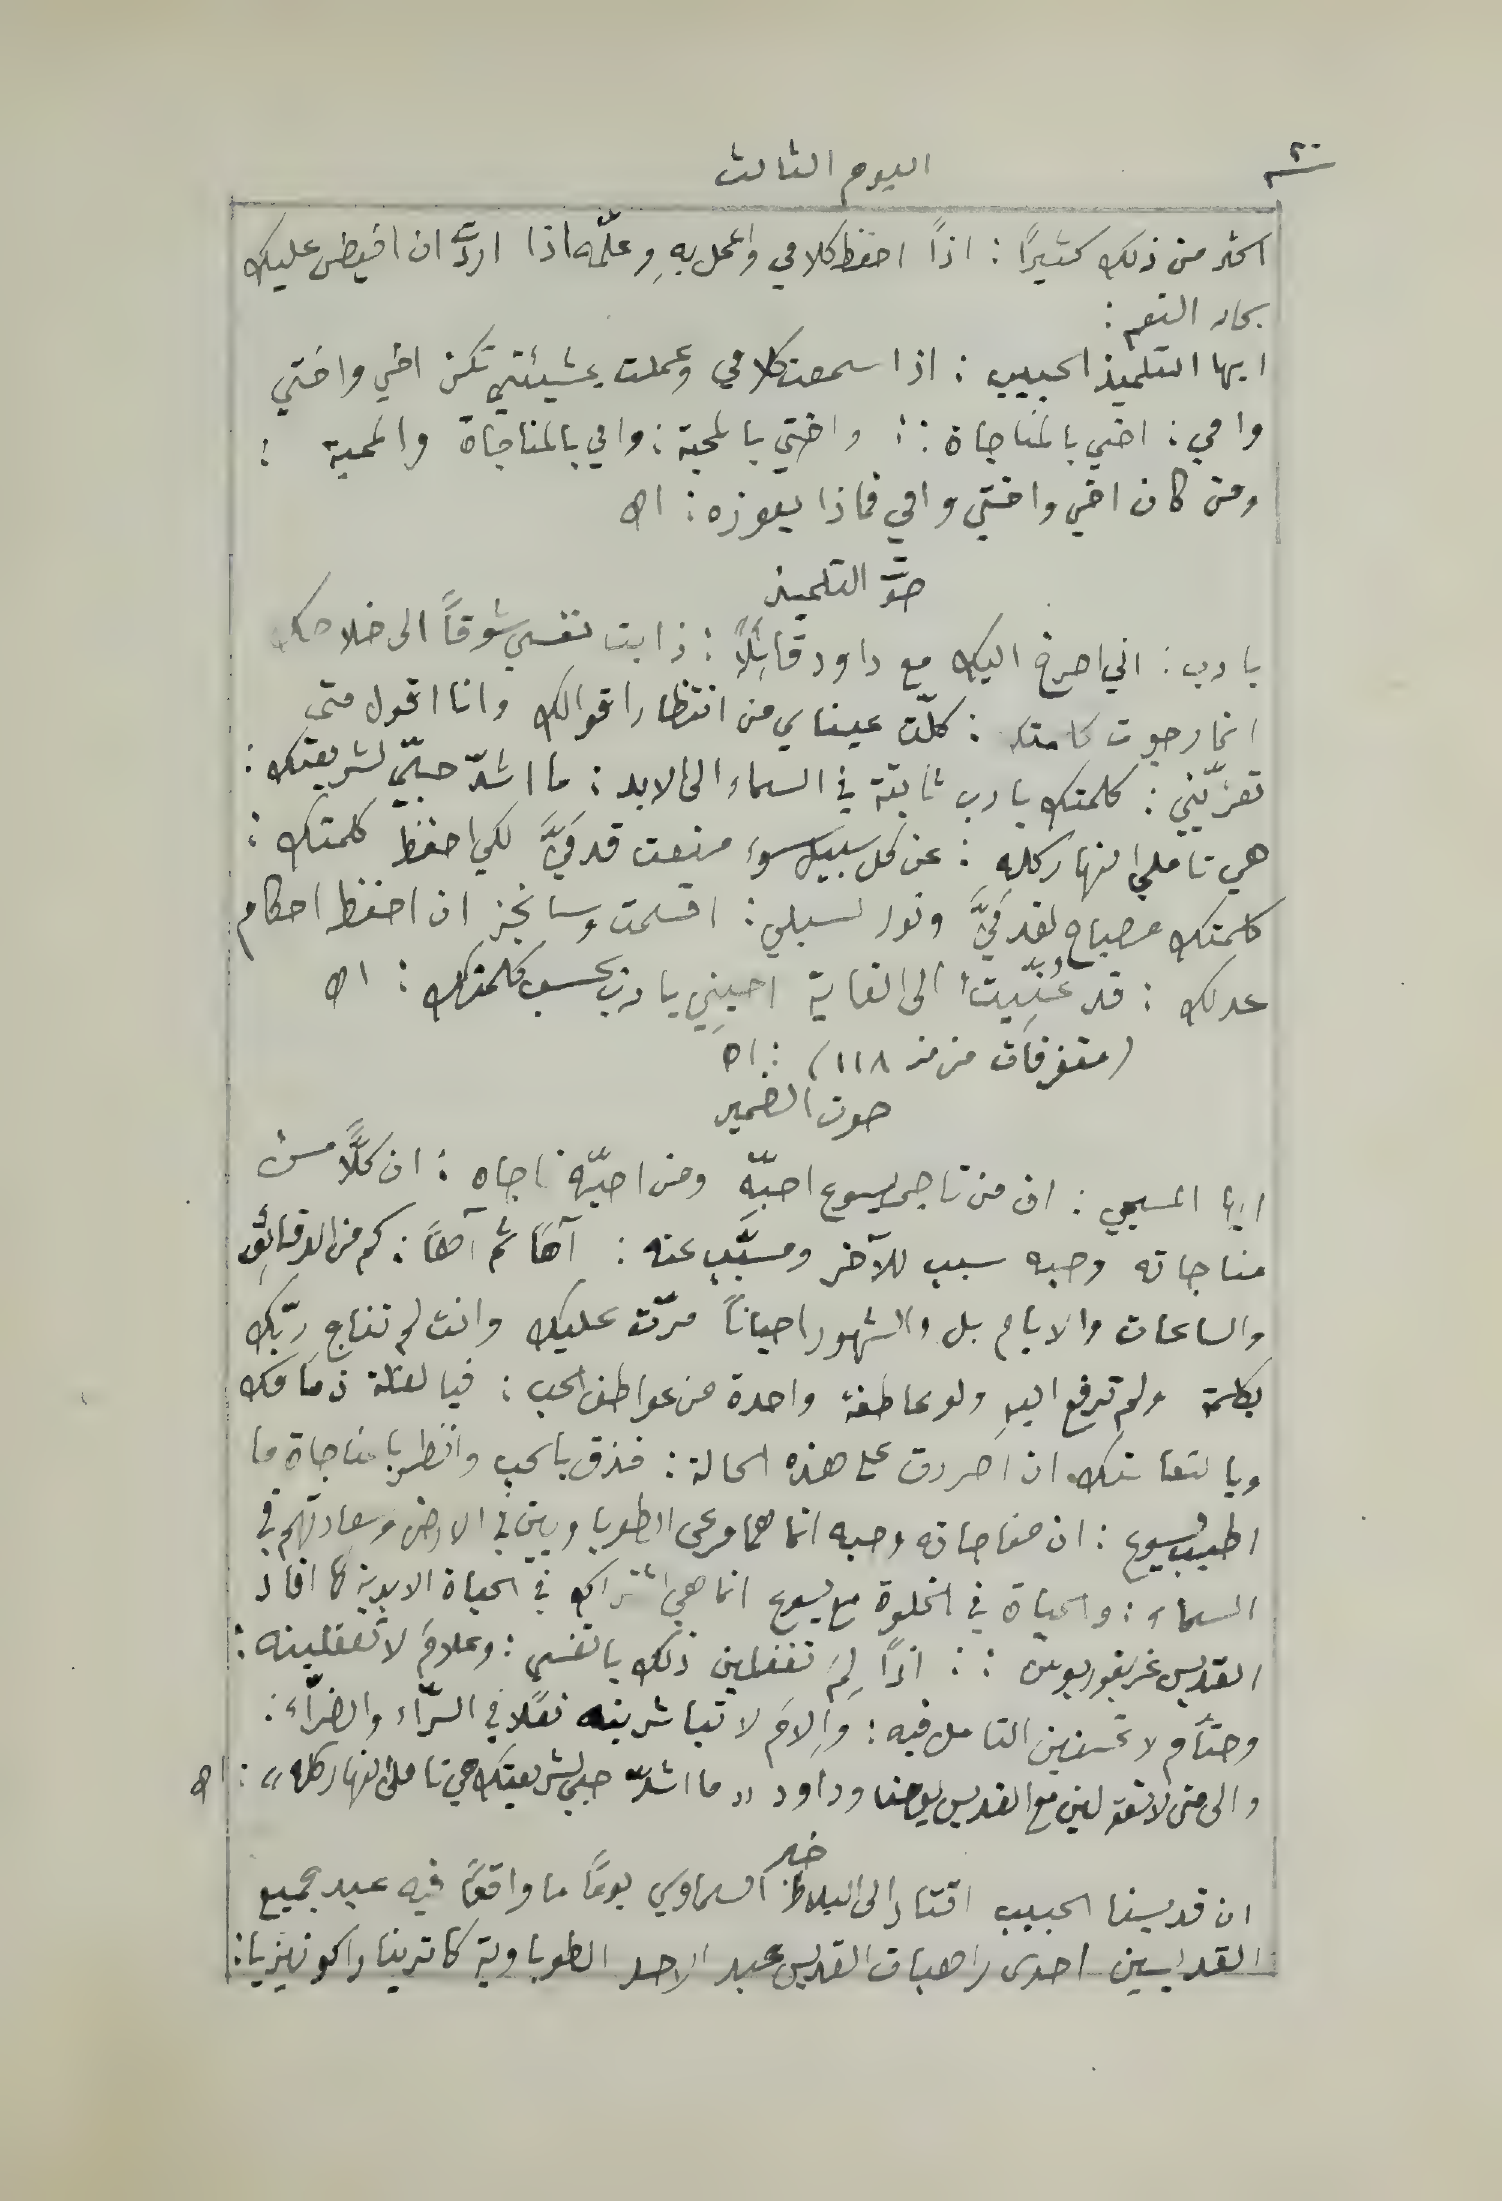 ٢٠
اليوم الثالث
اكثر من ذلك كثيرًا : اذاً احفظ كلامي واعمل بهِ وعلّمه اذا اردتَّ ان افيض عليك
بحار النعم :
ايها التلميذ الحبيب : اذا سمعت كلامي وعملت بمشيئتي تكن اخي واختي
وامي : اخي بالمناجاة :: واختي بالمحبة : وامي بالمناجاة والمحبة :
ومن كان اخي واختي وامي فماذا يعوزه : اه
صوت التلميذ
يا رب : اني اصرخ اليك مع داود قائِلاً : ذابت نفسي شوقاً الى خلاصك
انما رجوت كلمتك : كلّت عيناي من انتظار اقوالك وانا اقول متى
تعزّيني : كلمتك يا رب ثابتة في السماء الى الابد : ما اشدّ حبّي لشريعتك :
هي تاملي النهار كله : عن كل سبيل سوء منعت قدميَّ لكي احفظ كلمتك :
كلمتك مصباح لقدميَّ ونور لسبلي : اقسمت وسانجز ان احفظ احكام
عدلك : قد عُنّيتُ الى الغاية احيني يا رب بحسب كلمتك : اه
(متفرقات من مز ١١٨) : اه
صوت الضمير
ايها المسيحي : ان من ناجى يسوع احبّه ومن احبّه ناجاه : ان كلًّا من
مناجاته وحبه سبب للآخر ومسبَّب عنه : آهًا ثم آهًا : كم من الدقائِق
والساعات والايام بل والشهور احياناً مرّت عليك وانت لم تناجِ ربّك
بكلمة ولم ترفع اليهِ ولو عاطفة واحدة من عواطف الحب : فيا لغفلة زمانك
ويا لتعاستك ان اصررت على هذه الحالة : فذق بالحب وانظر بالمناجاة ما
اطيب يسوع : ان مناجاته وحبه انما هما مرعى الطوباويين في الارض وسعادتهم في
السماء : والحياة في الخلوة مع يسوع انما هي اشتراك في الحياة الابدية كما افاد
القديس غريغوريوس :: اذًا لِمَ تغفلين ذلك يا نفسي : وعلامَ لا تعقلينه :
وحتَّام لا تحسنين التامل فيه : وإلامَ لا تباشرينه فعلًا في السرّاء والضرّاء :
والى متى لا تقولين مع القديس يوحنا وداود « ما اشدّ حبي لشريعتك هي تاملي النهار كله » : اه
خبر
ان قديسنا الحبيب اقتاد الى البلاط السماوي يومًا ما واقعًا فيه عيد جميع
القديسين احدى راهبات القديس عبد الاحد الطوباوية كاترينا راكونيزيا :